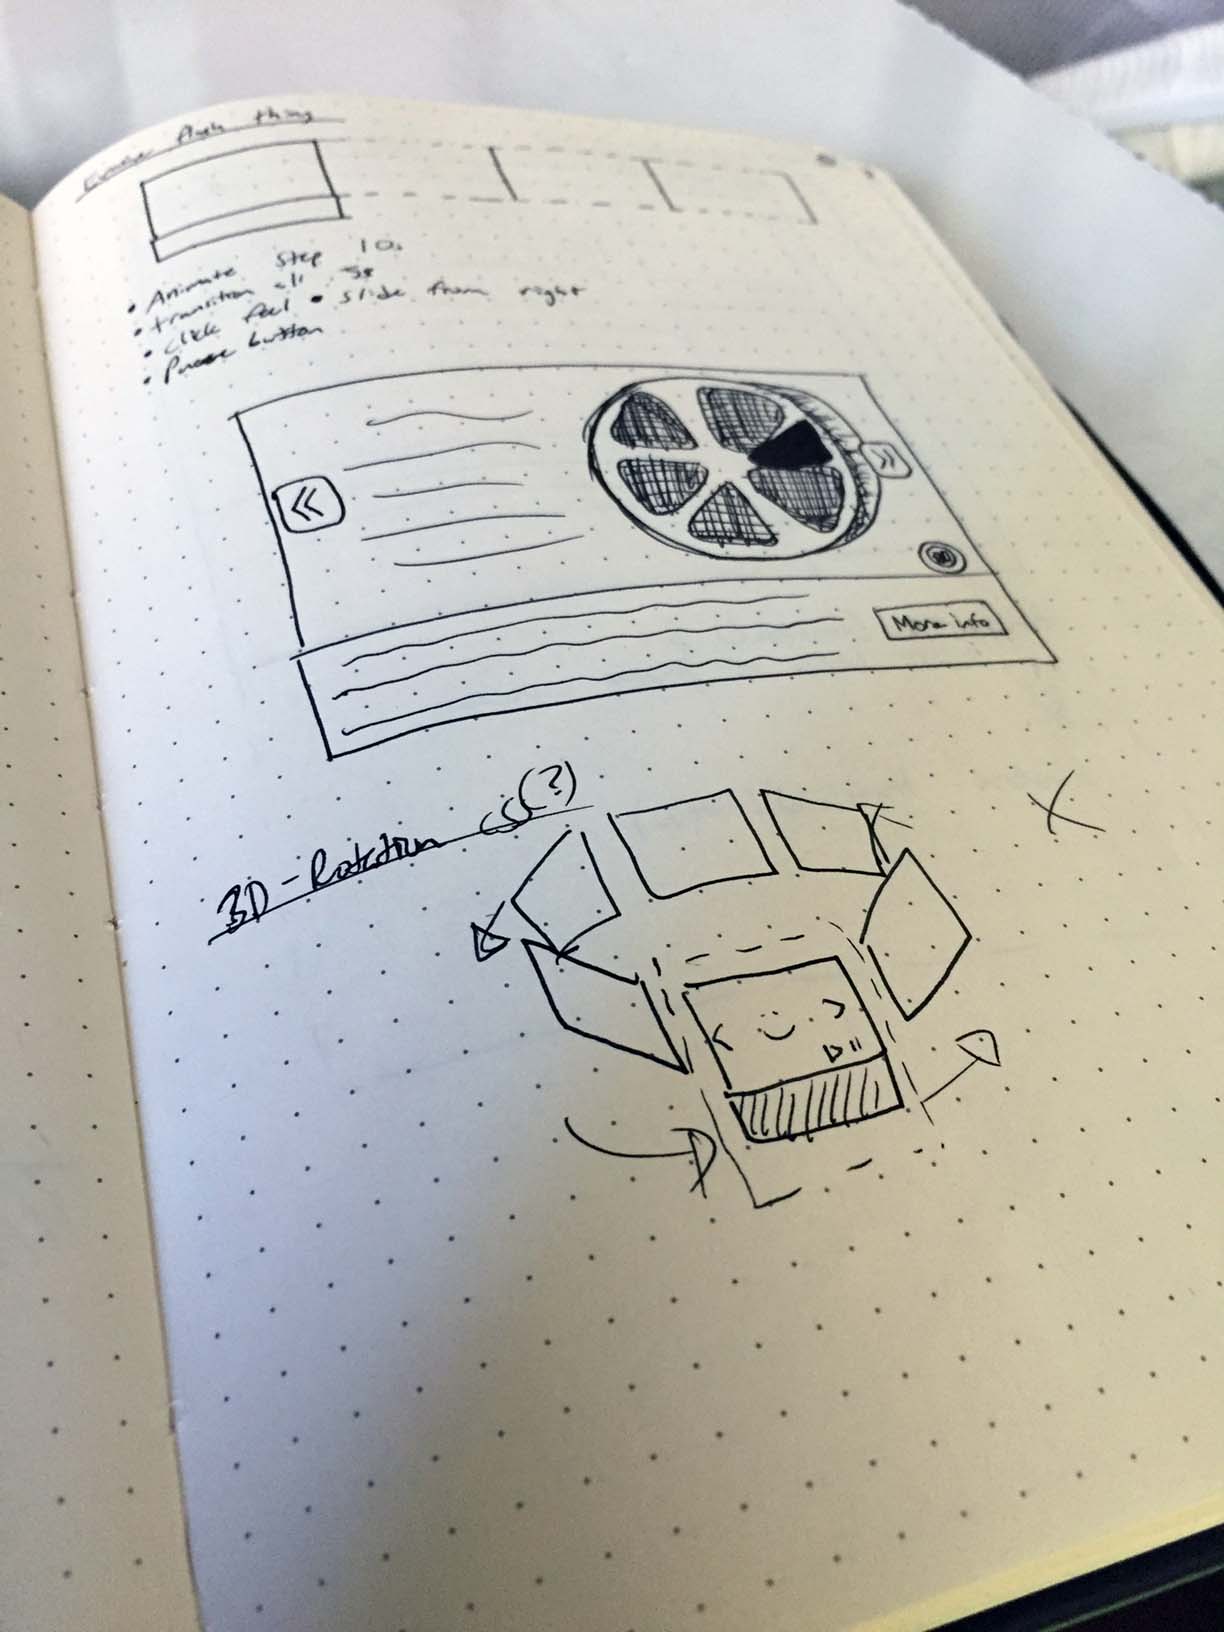 flash thing
• Animate step 10s
• transition all 5s
• click feel • slide from right
• Pause button
More info
3D-Rotation css(?)